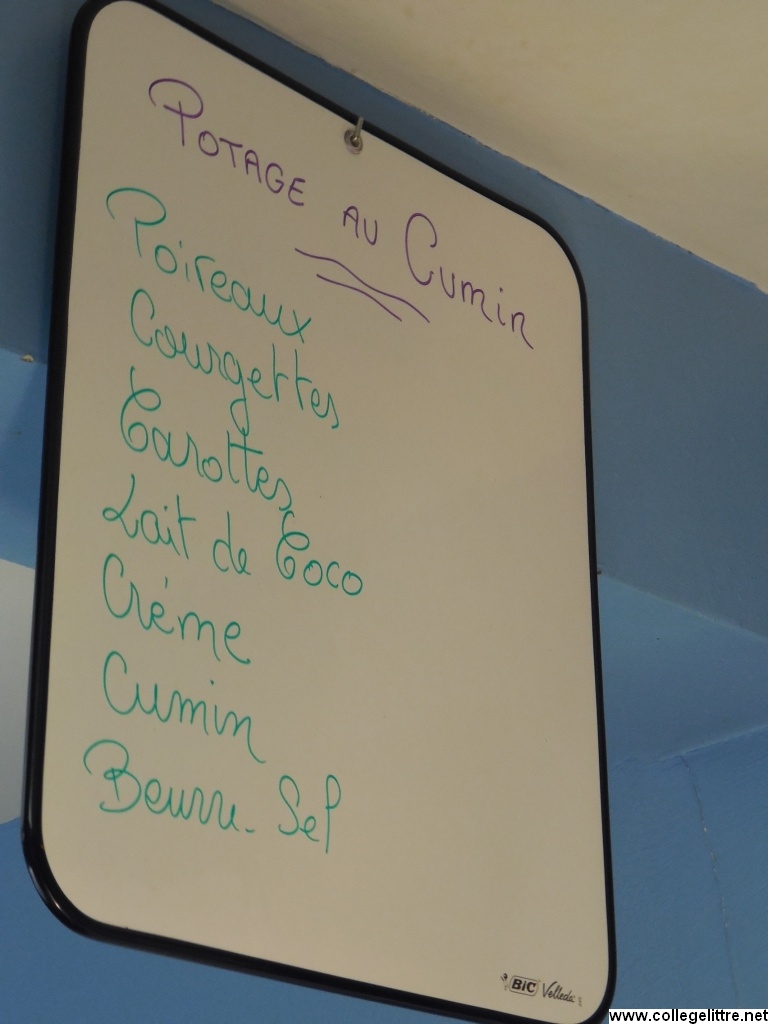 POTAGE AU Cumin
Poireaux
Courgettes
Carottes
Lait de Coco
Créme
Cumin
Beurre - Sel
BIC Velleda
www.collegelittre.net